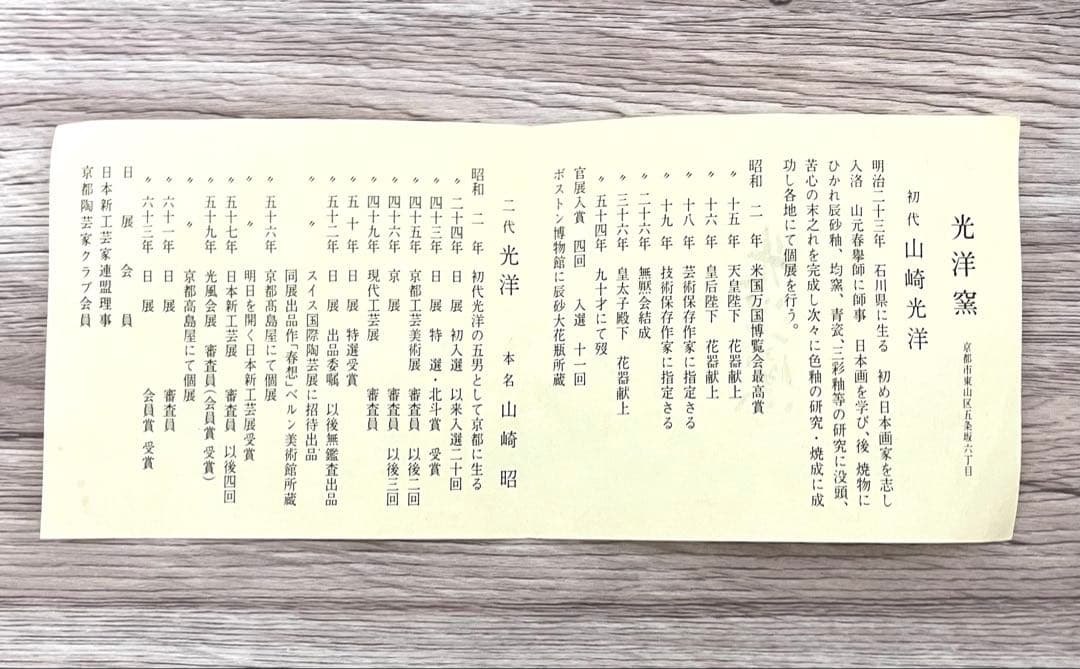 光洋窯
京都市東山区五条坂六丁目
初代 山崎光洋
明治二十三年 石川県に生る 初め日本画家を志し
入洛 山元春擧師に師事 日本画を学び、後 焼物に
ひかれ辰砂釉、均窯、青瓷、三彩釉等の研究に没頭、
苦心の末之れを完成し次々に色釉の研究・焼成に成
功し各地にて個展を行う。
昭和 二 年 米国万国博覧会最高賞
〃 十五 年 天皇陛下 花器献上
〃 十六 年 皇后陛下 花器献上
〃 十八 年 芸術保存作家に指定さる
〃 十九 年 技術保存作家に指定さる
〃 二十六年 無黙会結成
〃 三十六年 皇太子殿下 花器献上
〃 五十四年 九十才にて歿
官展入賞 四回 入選 十一回
ボストン博物館に辰砂大花瓶所蔵
二代 光洋 本名 山崎 昭
昭和 二 年 初代光洋の五男として京都に生る
〃 二十四年 日 展 初入選 以来入選二十回
〃 四十三年 日 展 特選・北斗賞 受賞
〃 四十五年 京都工芸美術展 審査員 以後二回
〃 四十六年 京 展 審査員 以後三回
〃 四十九年 現代工芸展 審査員
〃 五十 年 日 展 特選受賞
〃 五十二年 日 展 出品委嘱 以後無鑑査出品
〃 〃 スイス国際陶芸展に招待出品
同展出品作「春想」ベルン美術館所蔵
〃 五十六年 京都髙島屋にて個展
〃 〃 明日を開く日本新工芸展受賞
〃 五十七年 日本新工芸展 審査員 以後四回
〃 五十九年 光風会展 審査員(会員賞 受賞)
〃 〃 京都髙島屋にて個展
〃 六十一年 日 展 審査員
〃 六十三年 日 展 会員賞 受賞
日 展 会 員
日本新工芸家連盟理事
京都陶芸家クラブ会員